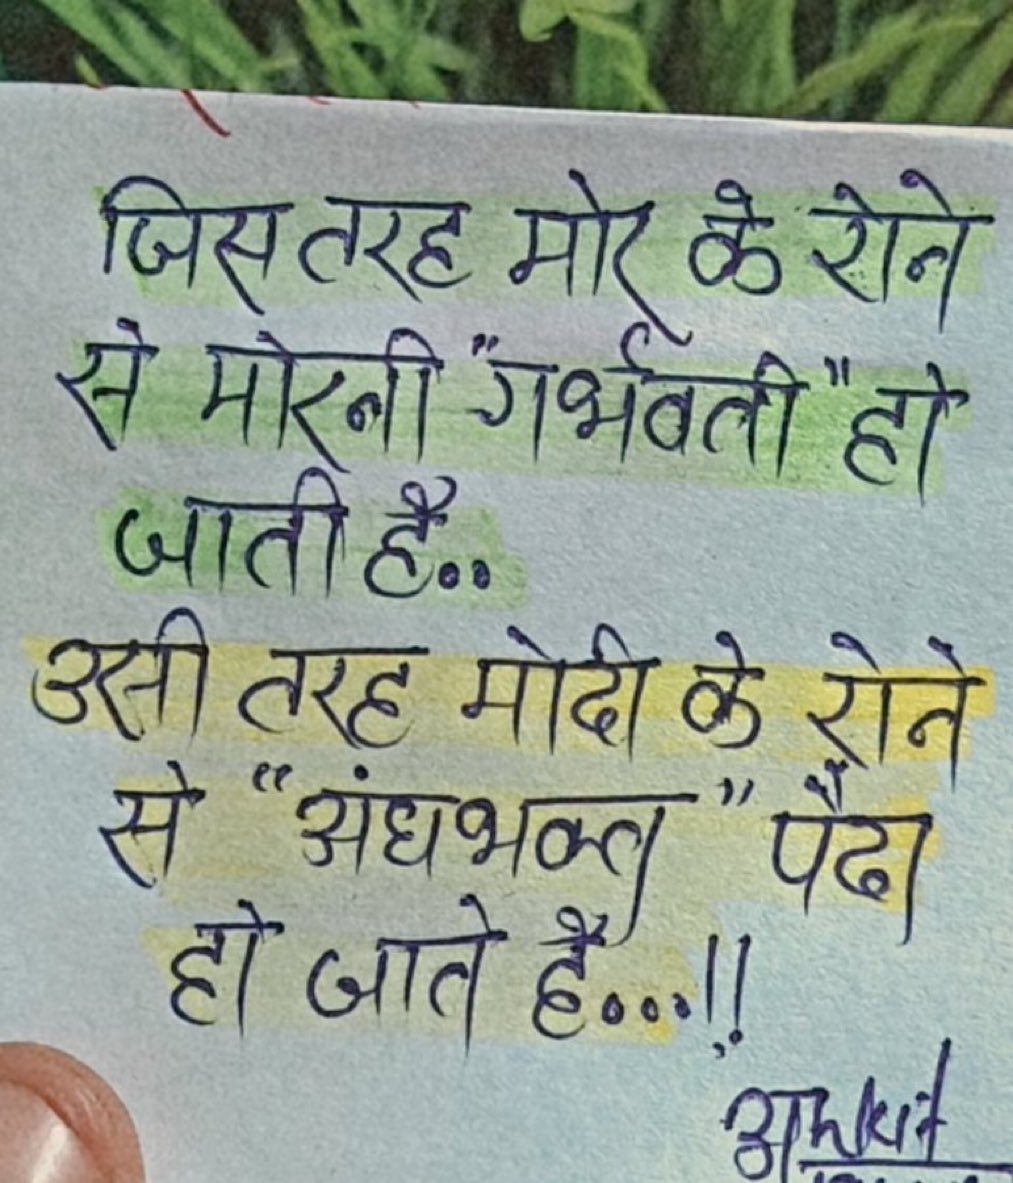 जिस तरह मोर के रोने
से मोरनी "गर्भवती" हो
जाती है..
उसी तरह मोदी के रोने
से "अंधभक्त" पैदा
हो जाते है...!!